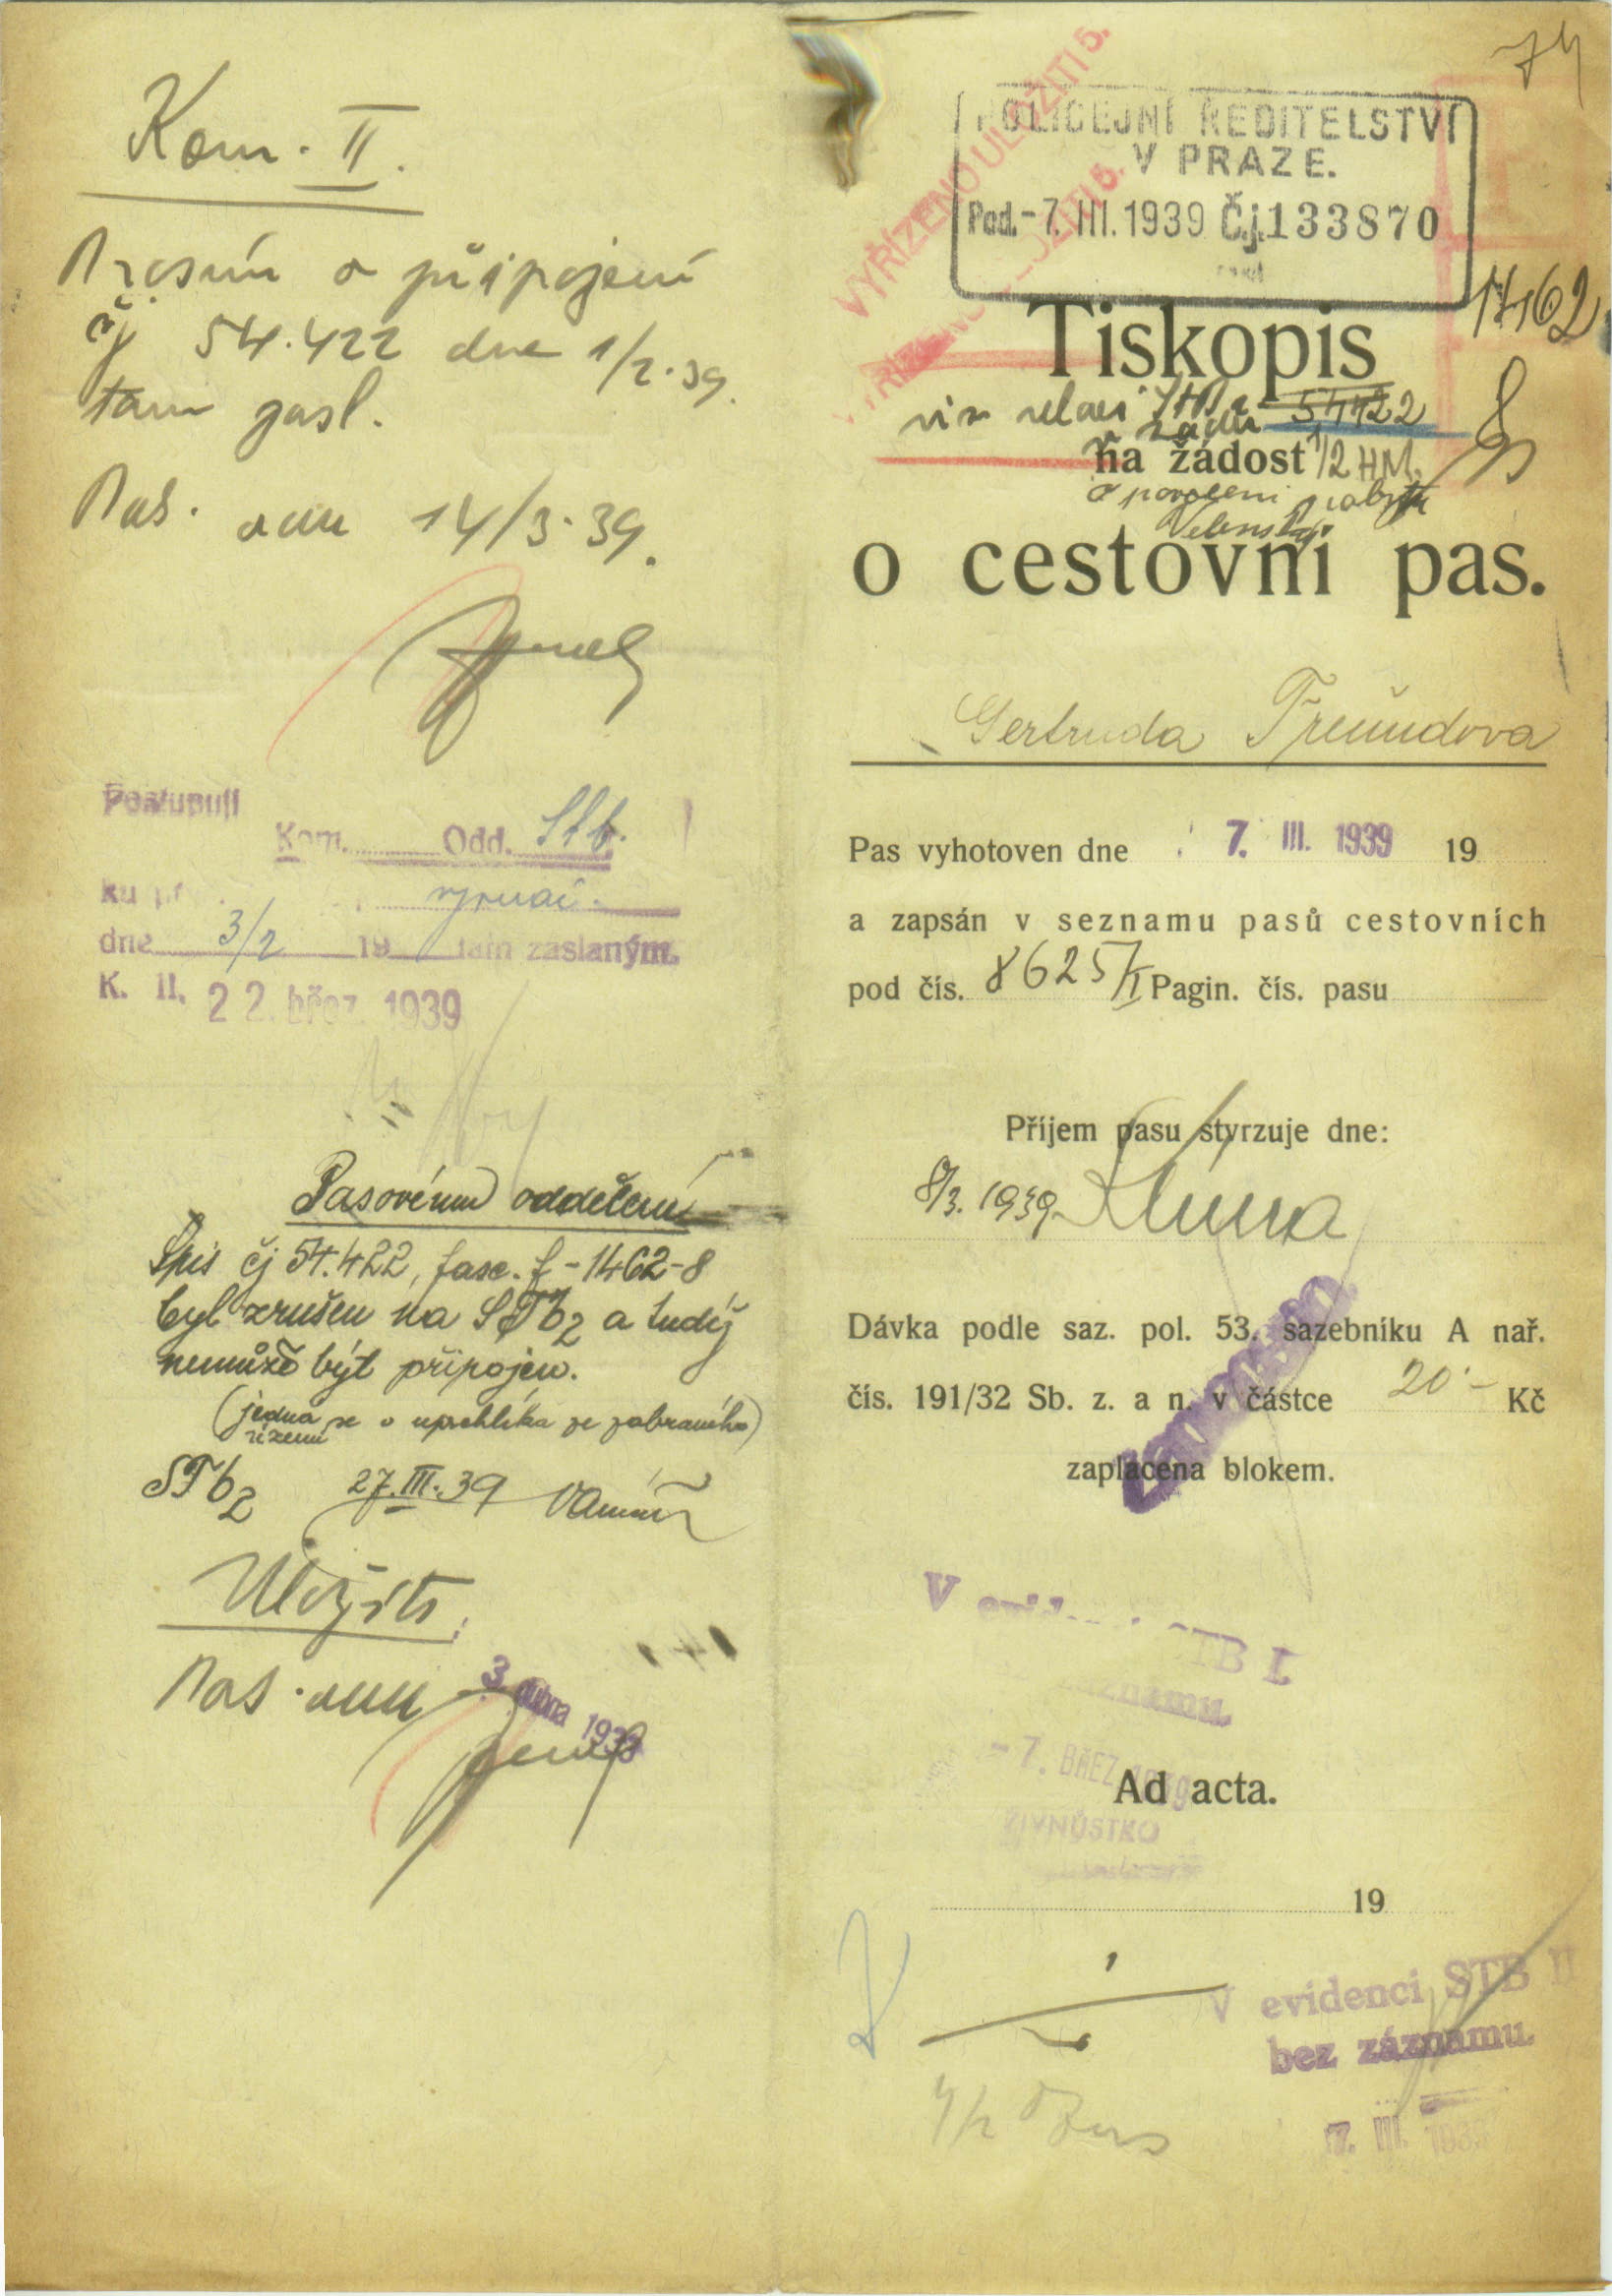 Kom. II.
Prosím o připojení
čj 54.422 dne 1/2.39.
tam zasl.
Pas. odd 14/3.39.
Postupuji
Kom. Odd. Stb.
dne 3/2 19 tam zaslaným.
K. II. 22. břez. 1939
Pasovému oddělení
Spis čj 54.422, fasc. f-1462-8
byl zrušen na STb2 a tudíž
nemůže být připojen.
(jedná se o uprchlíka ze zabraného)
území
STb2 27.III.39
Uložiti.
Pas. odd
3. dubna 1939
74
VYŘÍZENO ULOŽITI 5.
POLICEJNÍ ŘEDITELSTVÍ
V PRAZE.
Pod. -7. III. 1939 Č.j. 133870
1462
8
Tiskopis
viz relaci 54422
na žádost 1/2 HM.
o povolení pobytu
o cestovní pas.
Gertruda Freundova
Pas vyhotoven dne 7. III. 1939 19
a zapsán v seznamu pasů cestovních
pod čís. 8625/I Pagin. čís. pasu
Příjem pasu stvrzuje dne:
8/3. 1939
Dávka podle saz. pol. 53. sazebníku A nař.
čís. 191/32 Sb. z. a n. v částce 20·– Kč
zaplacena blokem.
V STB I.
záznamu.
-7. BŘEZ. 1939
Ad acta.
ŽIVNŮSTKO
19
V evidenci STB II
bez záznamu.
7. III. 1939